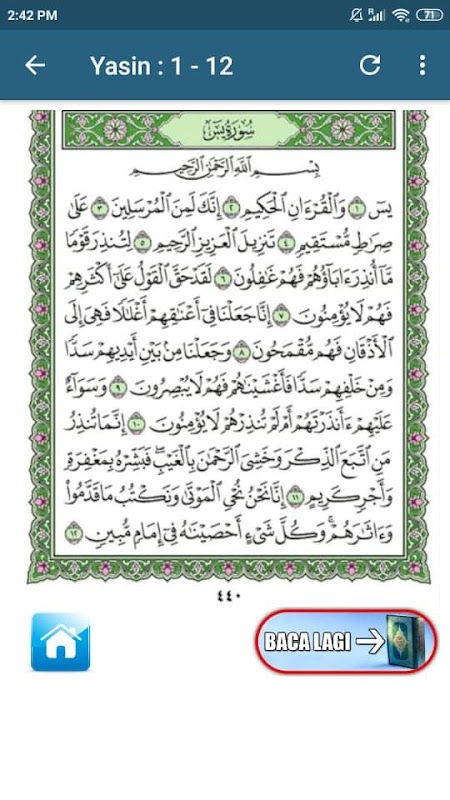 2:42 PM
71
Yasin : 1 - 12
سُورَةُ يسٓ
بِسْمِ اللَّهِ الرَّحْمَٰنِ الرَّحِيمِ
يسٓ ١ وَالْقُرْءَانِ الْحَكِيمِ ٢ إِنَّكَ لَمِنَ الْمُرْسَلِينَ ٣ عَلَىٰ
صِرَاطٍ مُّسْتَقِيمٍ ٤ تَنزِيلَ الْعَزِيزِ الرَّحِيمِ ٥ لِتُنذِرَ قَوْمًا
مَّا أُنذِرَ ءَابَاؤُهُمْ فَهُمْ غَٰفِلُونَ ٦ لَقَدْ حَقَّ الْقَوْلُ عَلَىٰ أَكْثَرِهِمْ
فَهُمْ لَا يُؤْمِنُونَ ٧ إِنَّا جَعَلْنَا فِي أَعْنَٰقِهِمْ أَغْلَٰلًا فَهِيَ إِلَى
الْأَذْقَانِ فَهُم مُّقْمَحُونَ ٨ وَجَعَلْنَا مِن بَيْنِ أَيْدِيهِمْ سَدًّا
وَمِنْ خَلْفِهِمْ سَدًّا فَأَغْشَيْنَٰهُمْ فَهُمْ لَا يُبْصِرُونَ ٩ وَسَوَاءٌ
عَلَيْهِمْ ءَأَنذَرْتَهُمْ أَمْ لَمْ تُنذِرْهُمْ لَا يُؤْمِنُونَ ١٠ إِنَّمَا تُنذِرُ
مَنِ اتَّبَعَ الذِّكْرَ وَخَشِيَ الرَّحْمَٰنَ بِالْغَيْبِ ۖ فَبَشِّرْهُ بِمَغْفِرَةٍ
وَأَجْرٍ كَرِيمٍ ١١ إِنَّا نَحْنُ نُحْيِ الْمَوْتَىٰ وَنَكْتُبُ مَا قَدَّمُوا
وَءَاثَٰرَهُمْ ۚ وَكُلَّ شَيْءٍ أَحْصَيْنَٰهُ فِي إِمَامٍ مُّبِينٍ ١٢
٤٤٠
BACA LAGI